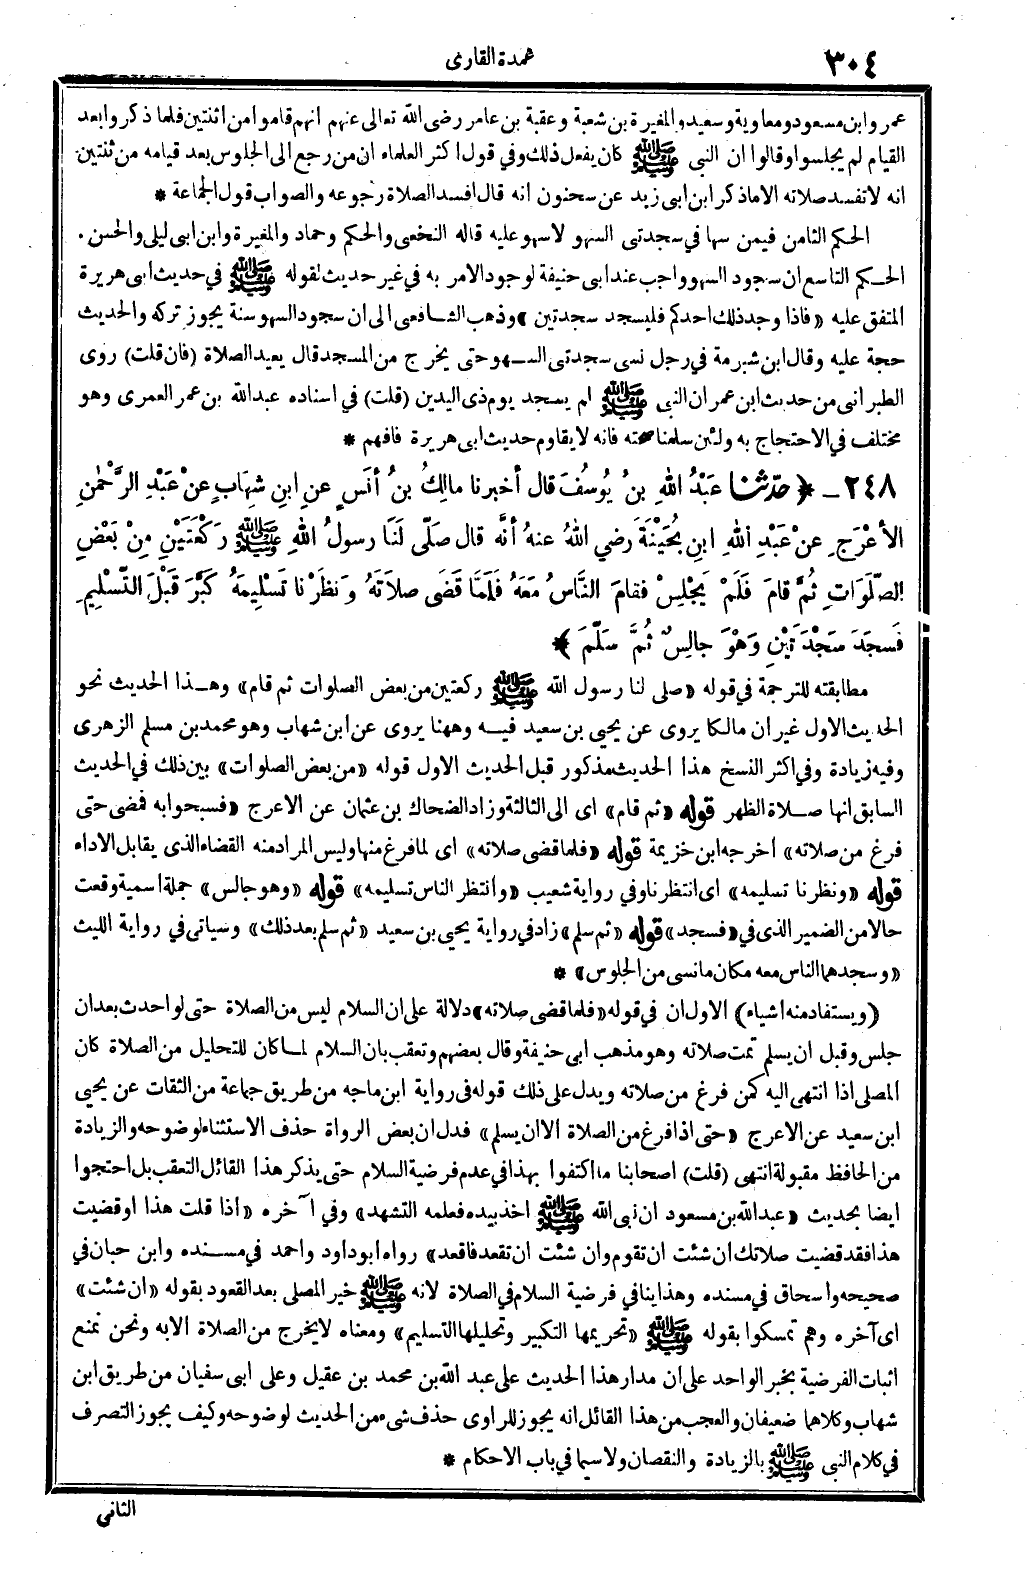 ٣٠٤
عمدة القارى
عمر وابن مسعود ومعاوية وسعيد والمغيرة بن شعبة وعقبة بن عامر رضى الله تعالى عنهم انهم قاموا من اثنتين فلما ذكروا بعد
القيام لم يجلسوا وقالوا ان النبى ﷺ كان يفعل ذلك وفي قول اكثر العلماء ان من رجع الى الجلوس بعد قيامه من ثنتين
انه لا تفسد صلاته الا ما ذكر ابن ابى زيد عن سحنون انه قال افسد الصلاة رجوعه والصواب قول الجماعة *
الحكم الثامن فيمن سها في سجدتى السهو لا سهو عليه قاله النخعى والحكم وحماد والمغيرة وابن ابى ليلى والحسن .
الحكم التاسع ان سجود السهو واجب عند ابى حنيفة لوجود الامر به في غير حديث لقوله ﷺ في حديث ابى هريرة
المتفق عليه «فاذا وجد ذلك احدكم فليسجد سجدتين» وذهب الشافعى الى ان سجود السهو سنة يجوز تركه والحديث
حجة عليه وقال ابن شبرمة في رجل نسى سجدتى السهو حتى يخرج من المسجد قال يعيد الصلاة (فان قلت) روى
الطبرانى من حديث ابن عمر ان النبى ﷺ لم يسجد يوم ذى اليدين (قلت) في اسناده عبد الله بن عمر العمرى وهو
مختلف في الاحتجاج به ولئن سلمنا صحته فانه لا يقاوم حديث ابى هريرة فافهم *
٢٤٨ - ﴿ حدّثنا عَبْدُ اللهِ بنُ يُوسُفَ قال أخبرنا مالِكُ بنُ أنَسٍ عنِ ابنِ شِهابٍ عنْ عَبْدِ الرَّحْمٰنِ
الأعْرَجِ عنْ عَبْدِ اللهِ ابنِ بُحَيْنَةَ رضي اللهُ عنهُ أنَّه قال صَلّى لَنا رسولُ اللهِ ﷺ رَكْعَتَيْنِ مِنْ بَعْضِ
الصَّلَوَاتِ ثُمَّ قامَ فَلَمْ يَجْلِسْ فقامَ النَّاسُ مَعَهُ فَلَمَّا قَضَى صلاَتَهُ وَنظَرْنا تَسْلِيمَهُ كَبَّرَ قَبْلَ التَّسْلِيمِ
فَسجَدَ سَجْدَتَيْنِ وَهْوَ جالِسٌ ثُمَّ سَلَّمَ ﴾
مطابقته للترجمة في قوله «صلى لنا رسول الله ﷺ ركعتين من بعض الصلوات ثم قام» وهذا الحديث نحو
الحديث الاول غير ان مالكا يروى عن يحيى بن سعيد فيه وههنا يروى عن ابن شهاب وهو محمد بن مسلم الزهرى
وفيه زيادة وفي اكثر النسخ هذا الحديث مذكور قبل الحديث الاول قوله «من بعض الصلوات» بين ذلك في الحديث
السابق انها صلاة الظهر قوله «ثم قام» اى الى الثالثة وزاد الضحاك بن عثمان عن الاعرج «فسبحوا به فمضى حتى
فرغ من صلاته» اخرجه ابن خزيمة قوله «فلما قضى صلاته» اى لما فرغ منها وليس المراد منه القضاء الذى يقابل الاداء
قوله «ونظرنا تسليمه» اى انتظرنا وفي رواية شعيب «وانتظر الناس تسليمه» قوله «وهو جالس» جملة اسمية وقعت
حالا من الضمير الذى في «فسجد» قوله «ثم سلم» زاد في رواية يحيى بن سعيد «ثم سلم بعد ذلك» وسياتى في رواية الليث
«وسجدهما الناس معه مكان ما نسى من الجلوس» *
(ويستفاد منه اشياء) الاول ان في قوله «فلما قضى صلاته» دلالة على ان السلام ليس من الصلاة حتى لو احدث بعد ان
جلس وقبل ان يسلم تمت صلاته وهو مذهب ابى حنيفة وقال بعضهم وتعقب بان السلام لما كان للتحليل من الصلاة كان
المصلى اذا انتهى اليه كمن فرغ من صلاته ويدل على ذلك قوله فى رواية ابن ماجه من طريق جماعة من الثقات عن يحيى
ابن سعيد عن الاعرج «حتى اذا فرغ من الصلاة الا ان يسلم» فدل ان بعض الرواة حذف الاستثناء لوضوحه والزيادة
من الحافظ مقبولة انتهى (قلت) اصحابنا ما اكتفوا بهذا في عدم فرضية السلام حتى يذكر هذا القائل التعقب بل احتجوا
ايضا بحديث «عبد الله بن مسعود ان نبى الله ﷺ اخذ بيده فعلمه التشهد» وفي آخره «اذا قلت هذا او قضيت
هذا فقد قضيت صلاتك ان شئت ان تقوم وان شئت ان تقعد فاقعد» رواه ابو داود واحمد في مسنده وابن حبان في
صحيحه واسحاق في مسنده وهذا ينافي فرضية السلام في الصلاة لانه ﷺ خير المصلى بعد القعود بقوله «ان شئت»
اى آخره وهم تمسكوا بقوله ﷺ «تحريمها التكبير وتحليلها التسليم» ومعناه لا يخرج من الصلاة الا به ونحن نمنع
اثبات الفرضية بخبر الواحد على ان مدار هذا الحديث على عبد الله بن محمد بن عقيل وعلى ابى سفيان من طريق ابن
شهاب وكلاهما ضعيفان والعجب من هذا القائل انه يجوز للراوى حذف شىء من الحديث لوضوحه وكيف يجوز التصرف
في كلام النبى ﷺ بالزيادة والنقصان ولا سيما في باب الاحكام *
الثانى